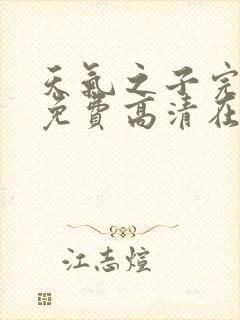 天氣之子完
免費高清在
江志煊